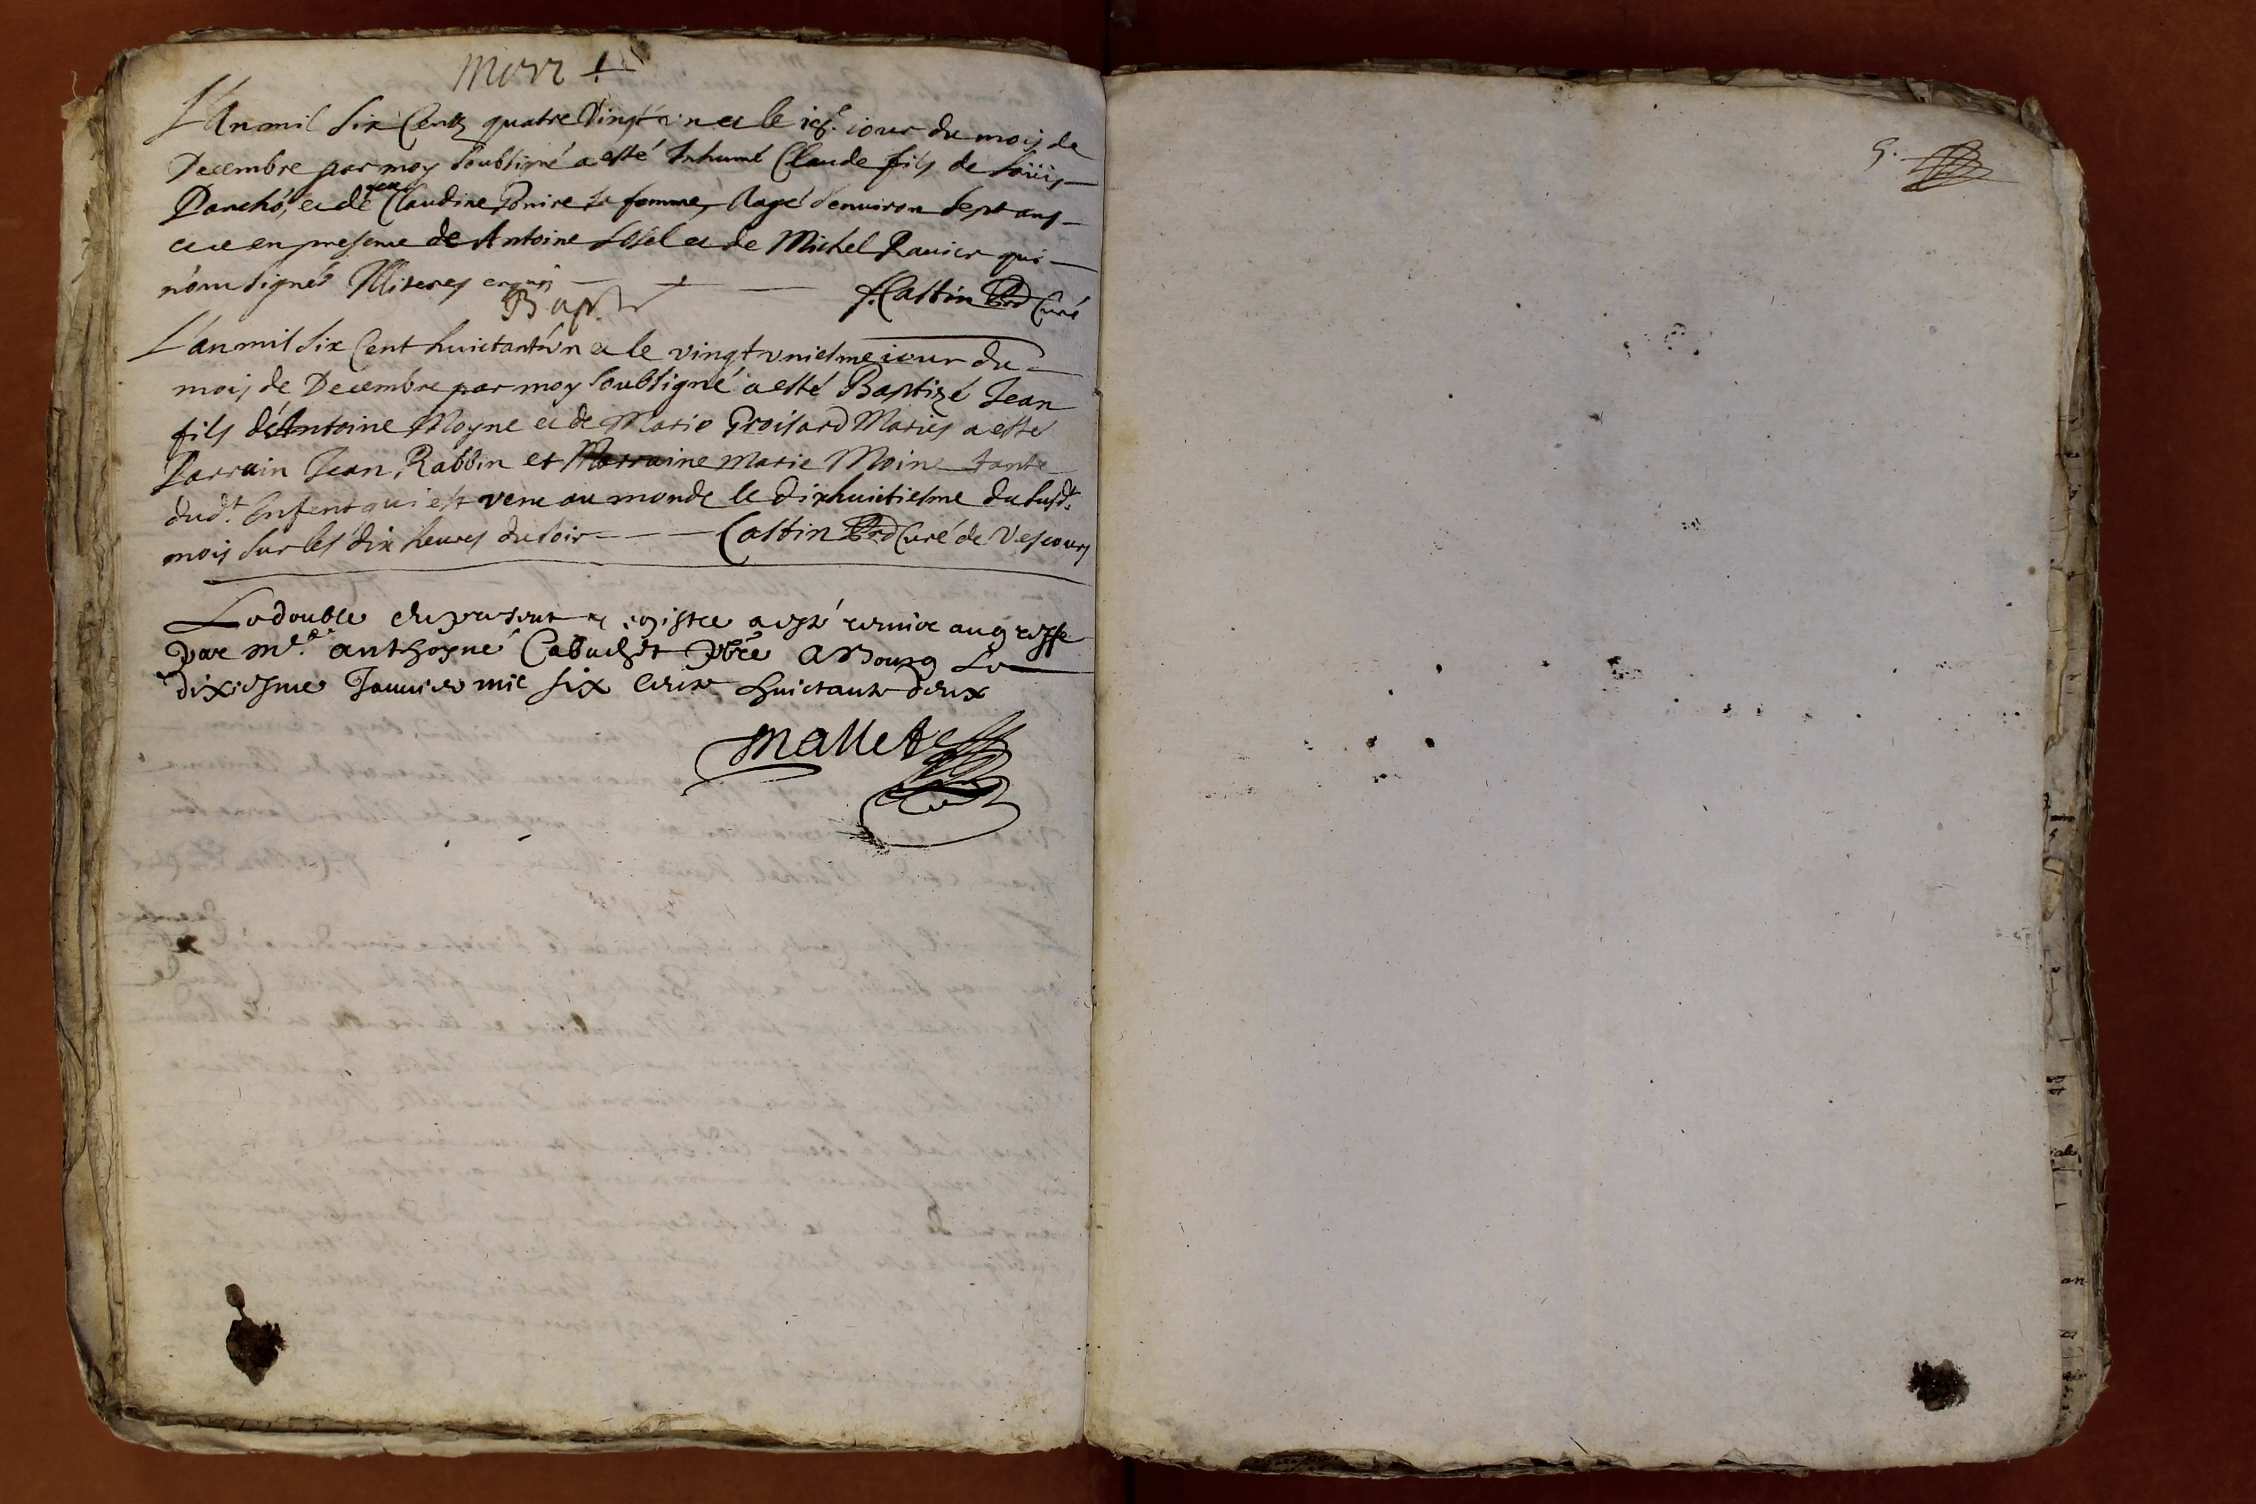 Mort +
L'An mil six Centz quatre Vingt un et le 16e. iour du mois de
Decembre par moy soubsigné a esté Inhumé Claude fils de Loüis
Panchó, et de feue Claudine Ponire sa femme, Aagé denuiron sept ans
et ce en presence de Antoine Losel et de Michel Rauier qui
n'ont signés Illiteres enquis J. Castin Pbr Curé
Bapt.
L'an mil six Cent huictant'vn et le vingt vniesme iour du
mois de Decembre par moy soubsigné a esté Baptizé Jean
fils d'Antoine Moyne et de Marie Proisard Mariés a esté
Parrain Jean Rabbin et Marraine Marie Moine tante
dudt. Enfent qui est venu au monde le dixhuictiesme du susdt.
mois sur les dix heures du soir Castin Pbr Curé de Vescours
Le double du present registre a esté remise au greffe
par mre. anthoyne Cabuchet pbre a Bourg Le
dixiesme Januier mil six centz huictante deux
Mallet
5.